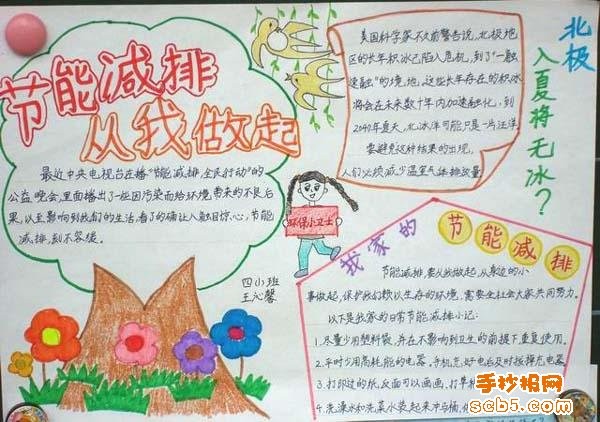 节能减排
从我做起
最近中央电视台在播"节能减排,全民行动"的
公益晚会,里面播出了一些因污染而给环境带来的不良后
果,以至影响到我们的生活,看了的确让人触目惊心,节能
减排,刻不容缓。
四小班
王沁馨
环保小卫士
美国科学家不久前警告说,北极地
区的长年积冰已陷入危机,到了"一触
速融"的境地,这些长年存在的积冰
将会在未来数十年内加速融化,到
2040年夏天,北冰洋可能只是一片汪洋.
要避免这种结果的出现,
人们必须减少温室气体排放量
北极
入夏将无冰?
我家的
节能减排
节能减排,要从我做起,从身边的小
事做起,保护我们赖以生存的环境,需要全社会大家共同努力.
以下是我家的日常节能减排小记:
1.尽量少用塑料袋,并在不影响到卫生的前提下重复使用.
2.平时少用高耗能的电器.手机充好电后及时拔掉充电器.
3.打印过的纸,反面可以画画,打草稿
4.洗澡水和洗菜水装起来冲马桶,
手抄报网
scb5.com